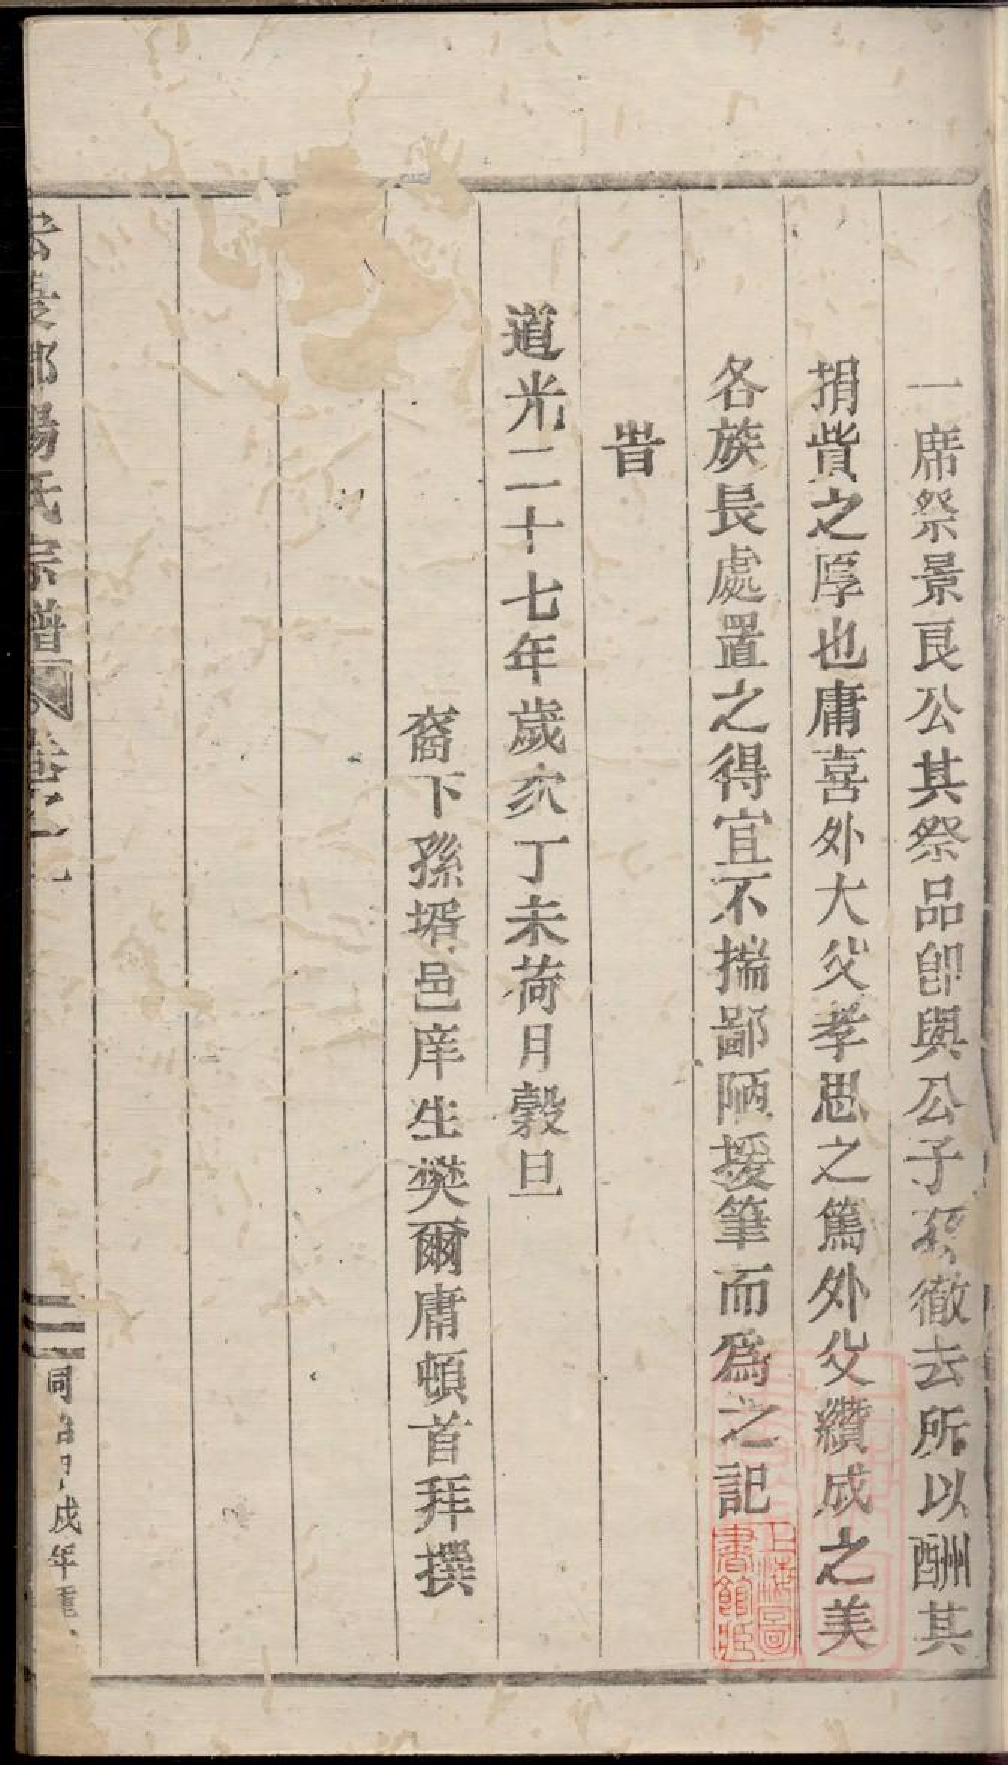 一席祭景良公其祭品卽與公子孫徹去所以酬其
捐貲之厚也庸喜外大父孝思之篤外父纘成之美
各族長處置之得宜不揣鄙陋援筆而爲之記
旹
道光二十七年歲次丁未荷月穀旦
裔下孫壻邑庠生樊爾庸頓首拜撰
楊氏宗譜 卷之一
同治甲戌年重
上海圖書館藏